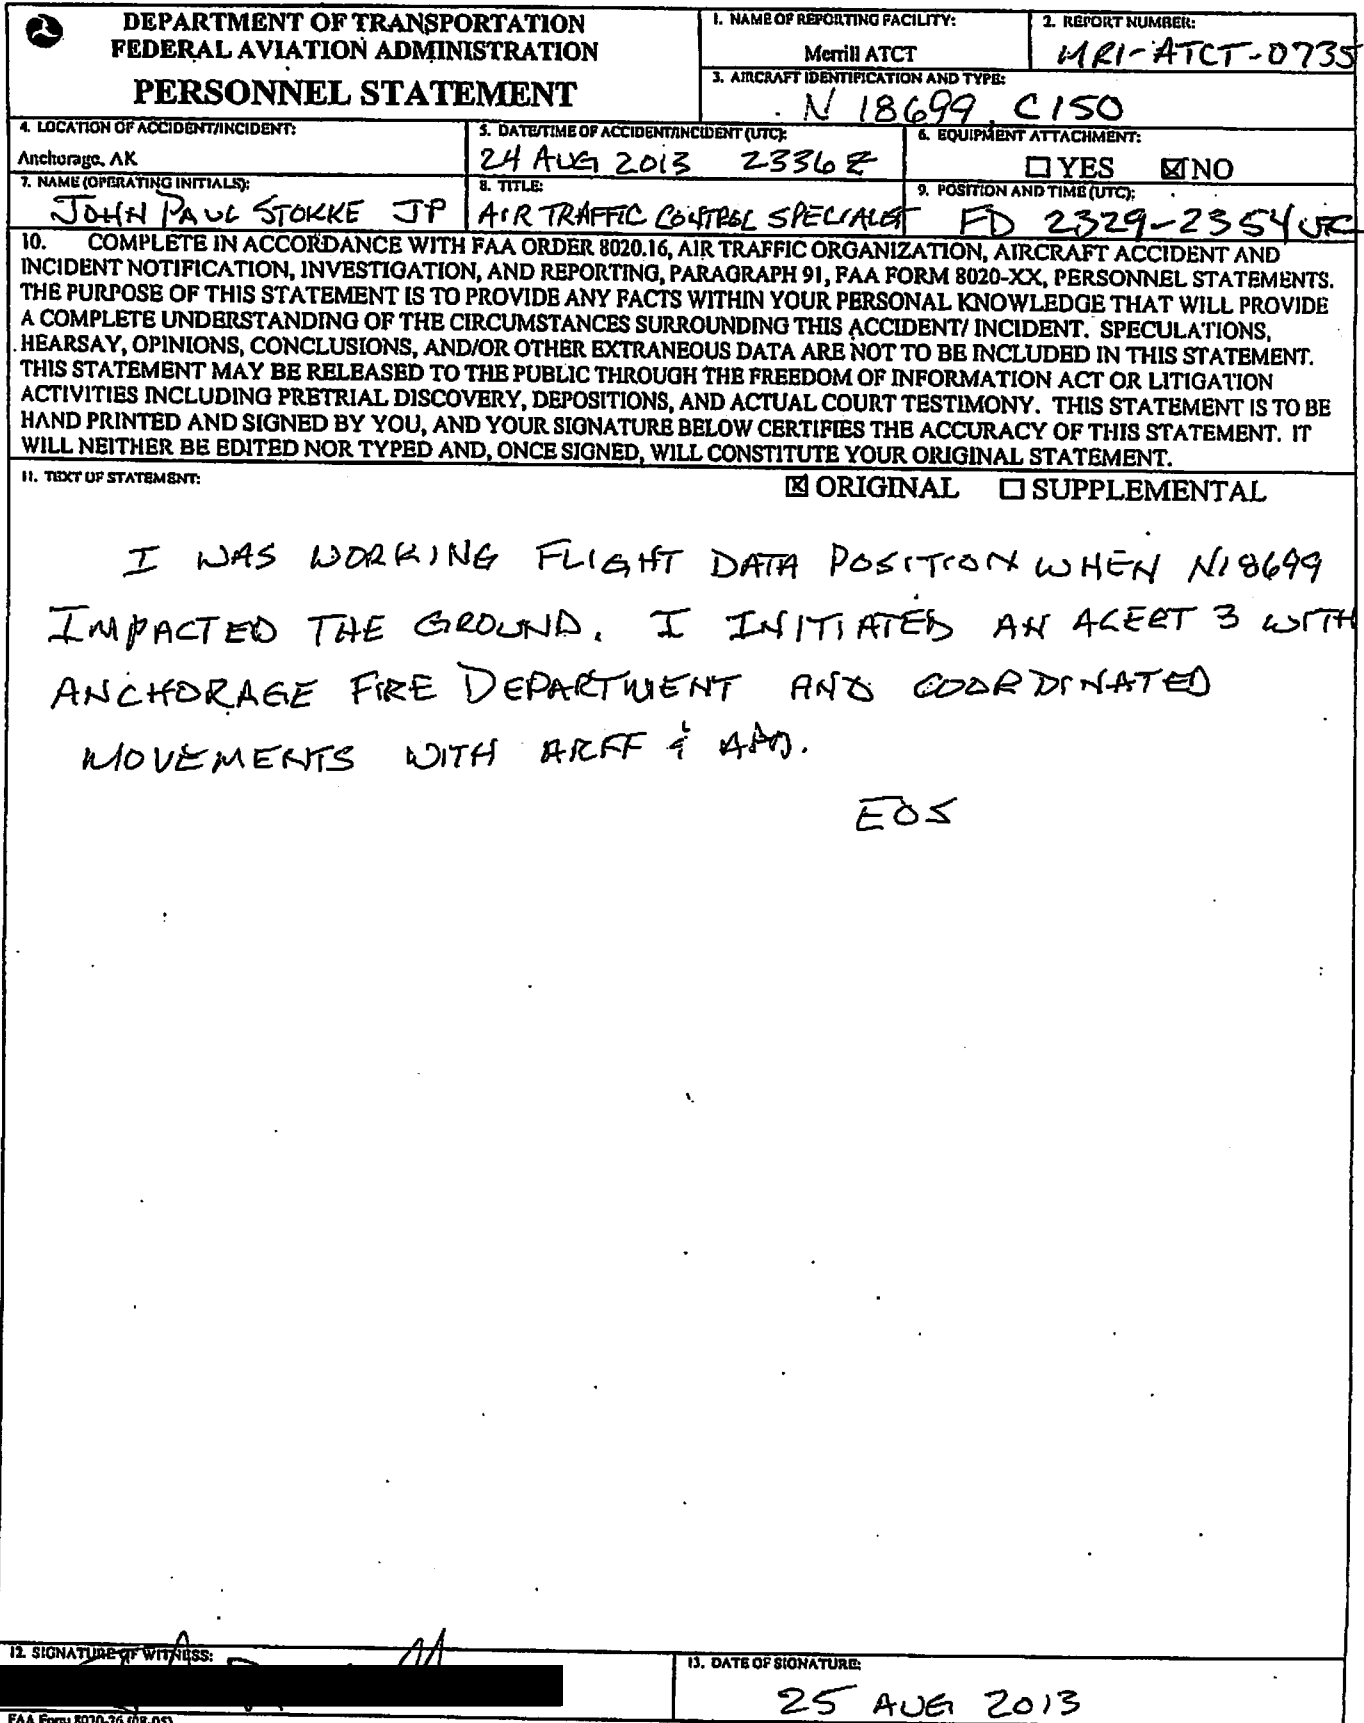 DEPARTMENT OF TRANSPORTATION
FEDERAL AVIATION ADMINISTRATION
PERSONNEL STATEMENT
1. NAME OF REPORTING FACILITY:
Merrill ATCT
2. REPORT NUMBER:
MRI-ATCT-0735
3. AIRCRAFT IDENTIFICATION AND TYPE:
N 18699 C150
4. LOCATION OF ACCIDENT/INCIDENT:
Anchorage, AK
5. DATE/TIME OF ACCIDENT/INCIDENT (UTC):
24 AUG 2013 2336 Z
6. EQUIPMENT ATTACHMENT:
☐ YES ☒ NO
7. NAME (OPERATING INITIALS):
JOHN PAUL STOKKE JP
8. TITLE:
AIR TRAFFIC CONTROL SPECIALIST
9. POSITION AND TIME (UTC):
FD 2329-2354 UTC
10. COMPLETE IN ACCORDANCE WITH FAA ORDER 8020.16, AIR TRAFFIC ORGANIZATION, AIRCRAFT ACCIDENT AND
INCIDENT NOTIFICATION, INVESTIGATION, AND REPORTING, PARAGRAPH 91, FAA FORM 8020-XX, PERSONNEL STATEMENTS.
THE PURPOSE OF THIS STATEMENT IS TO PROVIDE ANY FACTS WITHIN YOUR PERSONAL KNOWLEDGE THAT WILL PROVIDE
A COMPLETE UNDERSTANDING OF THE CIRCUMSTANCES SURROUNDING THIS ACCIDENT/ INCIDENT. SPECULATIONS,
HEARSAY, OPINIONS, CONCLUSIONS, AND/OR OTHER EXTRANEOUS DATA ARE NOT TO BE INCLUDED IN THIS STATEMENT.
THIS STATEMENT MAY BE RELEASED TO THE PUBLIC THROUGH THE FREEDOM OF INFORMATION ACT OR LITIGATION
ACTIVITIES INCLUDING PRETRIAL DISCOVERY, DEPOSITIONS, AND ACTUAL COURT TESTIMONY. THIS STATEMENT IS TO BE
HAND PRINTED AND SIGNED BY YOU, AND YOUR SIGNATURE BELOW CERTIFIES THE ACCURACY OF THIS STATEMENT. IT
WILL NEITHER BE EDITED NOR TYPED AND, ONCE SIGNED, WILL CONSTITUTE YOUR ORIGINAL STATEMENT.
11. TEXT OF STATEMENT:
☒ ORIGINAL ☐ SUPPLEMENTAL
I WAS WORKING FLIGHT DATA POSITION WHEN N18699
IMPACTED THE GROUND. I INITIATED AN ALERT 3 WITH
ANCHORAGE FIRE DEPARTMENT AND COORDINATED
MOVEMENTS WITH ARFF &
EOS
12. SIGNATURE OF WITNESS:
13. DATE OF SIGNATURE:
25 AUG 2013
FAA Form 8020-26 (08-05)